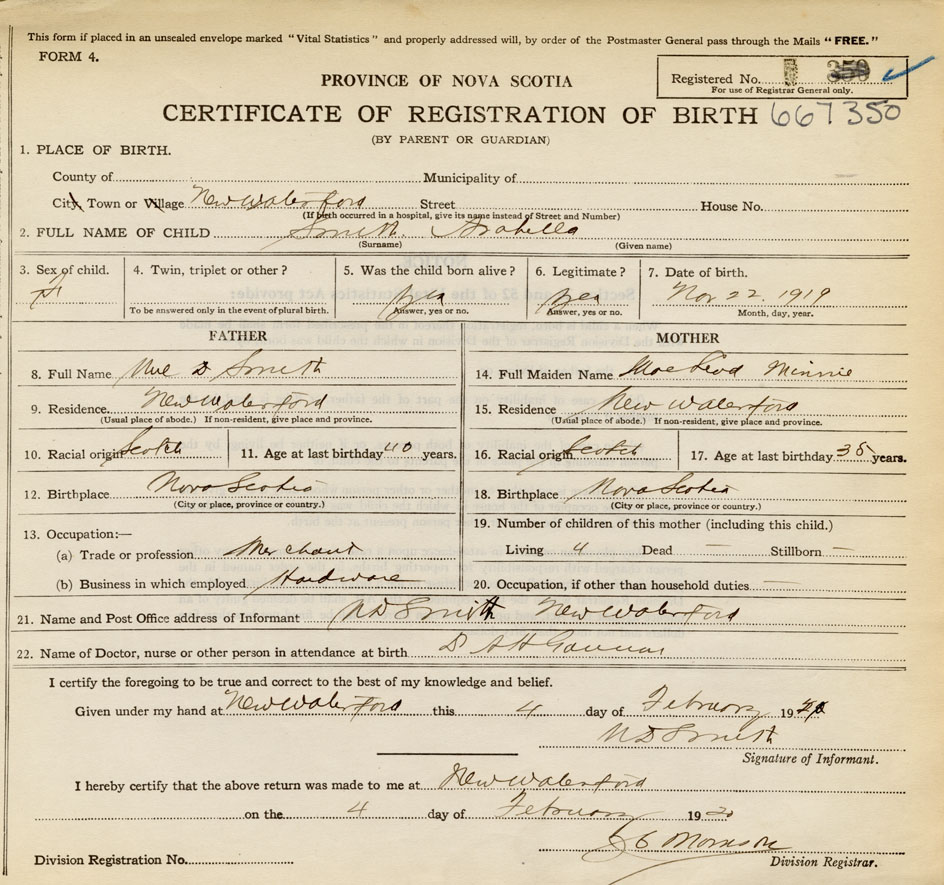 This form if placed in an unsealed envelope marked "Vital Statistics" and properly addressed will, by order of the Postmaster General pass through the Mails "FREE."
FORM 4.
PROVINCE OF NOVA SCOTIA
Registered No. 350
For use of Registrar General only.
CERTIFICATE OF REGISTRATION OF BIRTH 667350
(BY PARENT OR GUARDIAN)
1. PLACE OF BIRTH.
County of Municipality of
City, Town or Village New Waterford Street House No.
(If birth occurred in a hospital, give its name instead of Street and Number)
2. FULL NAME OF CHILD Smith Arabella
(Surname) (Given name)
3. Sex of child. 4. Twin, triplet or other? 5. Was the child born alive? 6. Legitimate? 7. Date of birth.
F yes yes Nov 22. 1919
To be answered only in the event of plural birth. Answer, yes or no. Answer, yes or no. Month, day, year.
FATHER MOTHER
8. Full Name D Smith 14. Full Maiden Name MacLeod Minnie
9. Residence. New Waterford 15. Residence New Waterford
(Usual place of abode.) If non-resident, give place and province. (Usual place of abode.) If non-resident, give place and province.
10. Racial origin Scotch 11. Age at last birthday 40 years. 16. Racial origin Scotch 17. Age at last birthday 35 years.
12. Birthplace Nova Scotia 18. Birthplace Nova Scotia
(City or place, province or country.) (City or place, province or country.)
13. Occupation:— 19. Number of children of this mother (including this child.)
(a) Trade or profession. Merchant Living 4 Dead — Stillborn —
(b) Business in which employed Hardware 20. Occupation, if other than household duties. —
21. Name and Post Office address of Informant ND Smith New Waterford
22. Name of Doctor, nurse or other person in attendance at birth D
I certify the foregoing to be true and correct to the best of my knowledge and belief.
Given under my hand at New Waterford this 4 day of February 1920
ND Smith
Signature of Informant.
I hereby certify that the above return was made to me at New Waterford
on the 4 day of February 1920
Morrison
Division Registration No. Division Registrar.